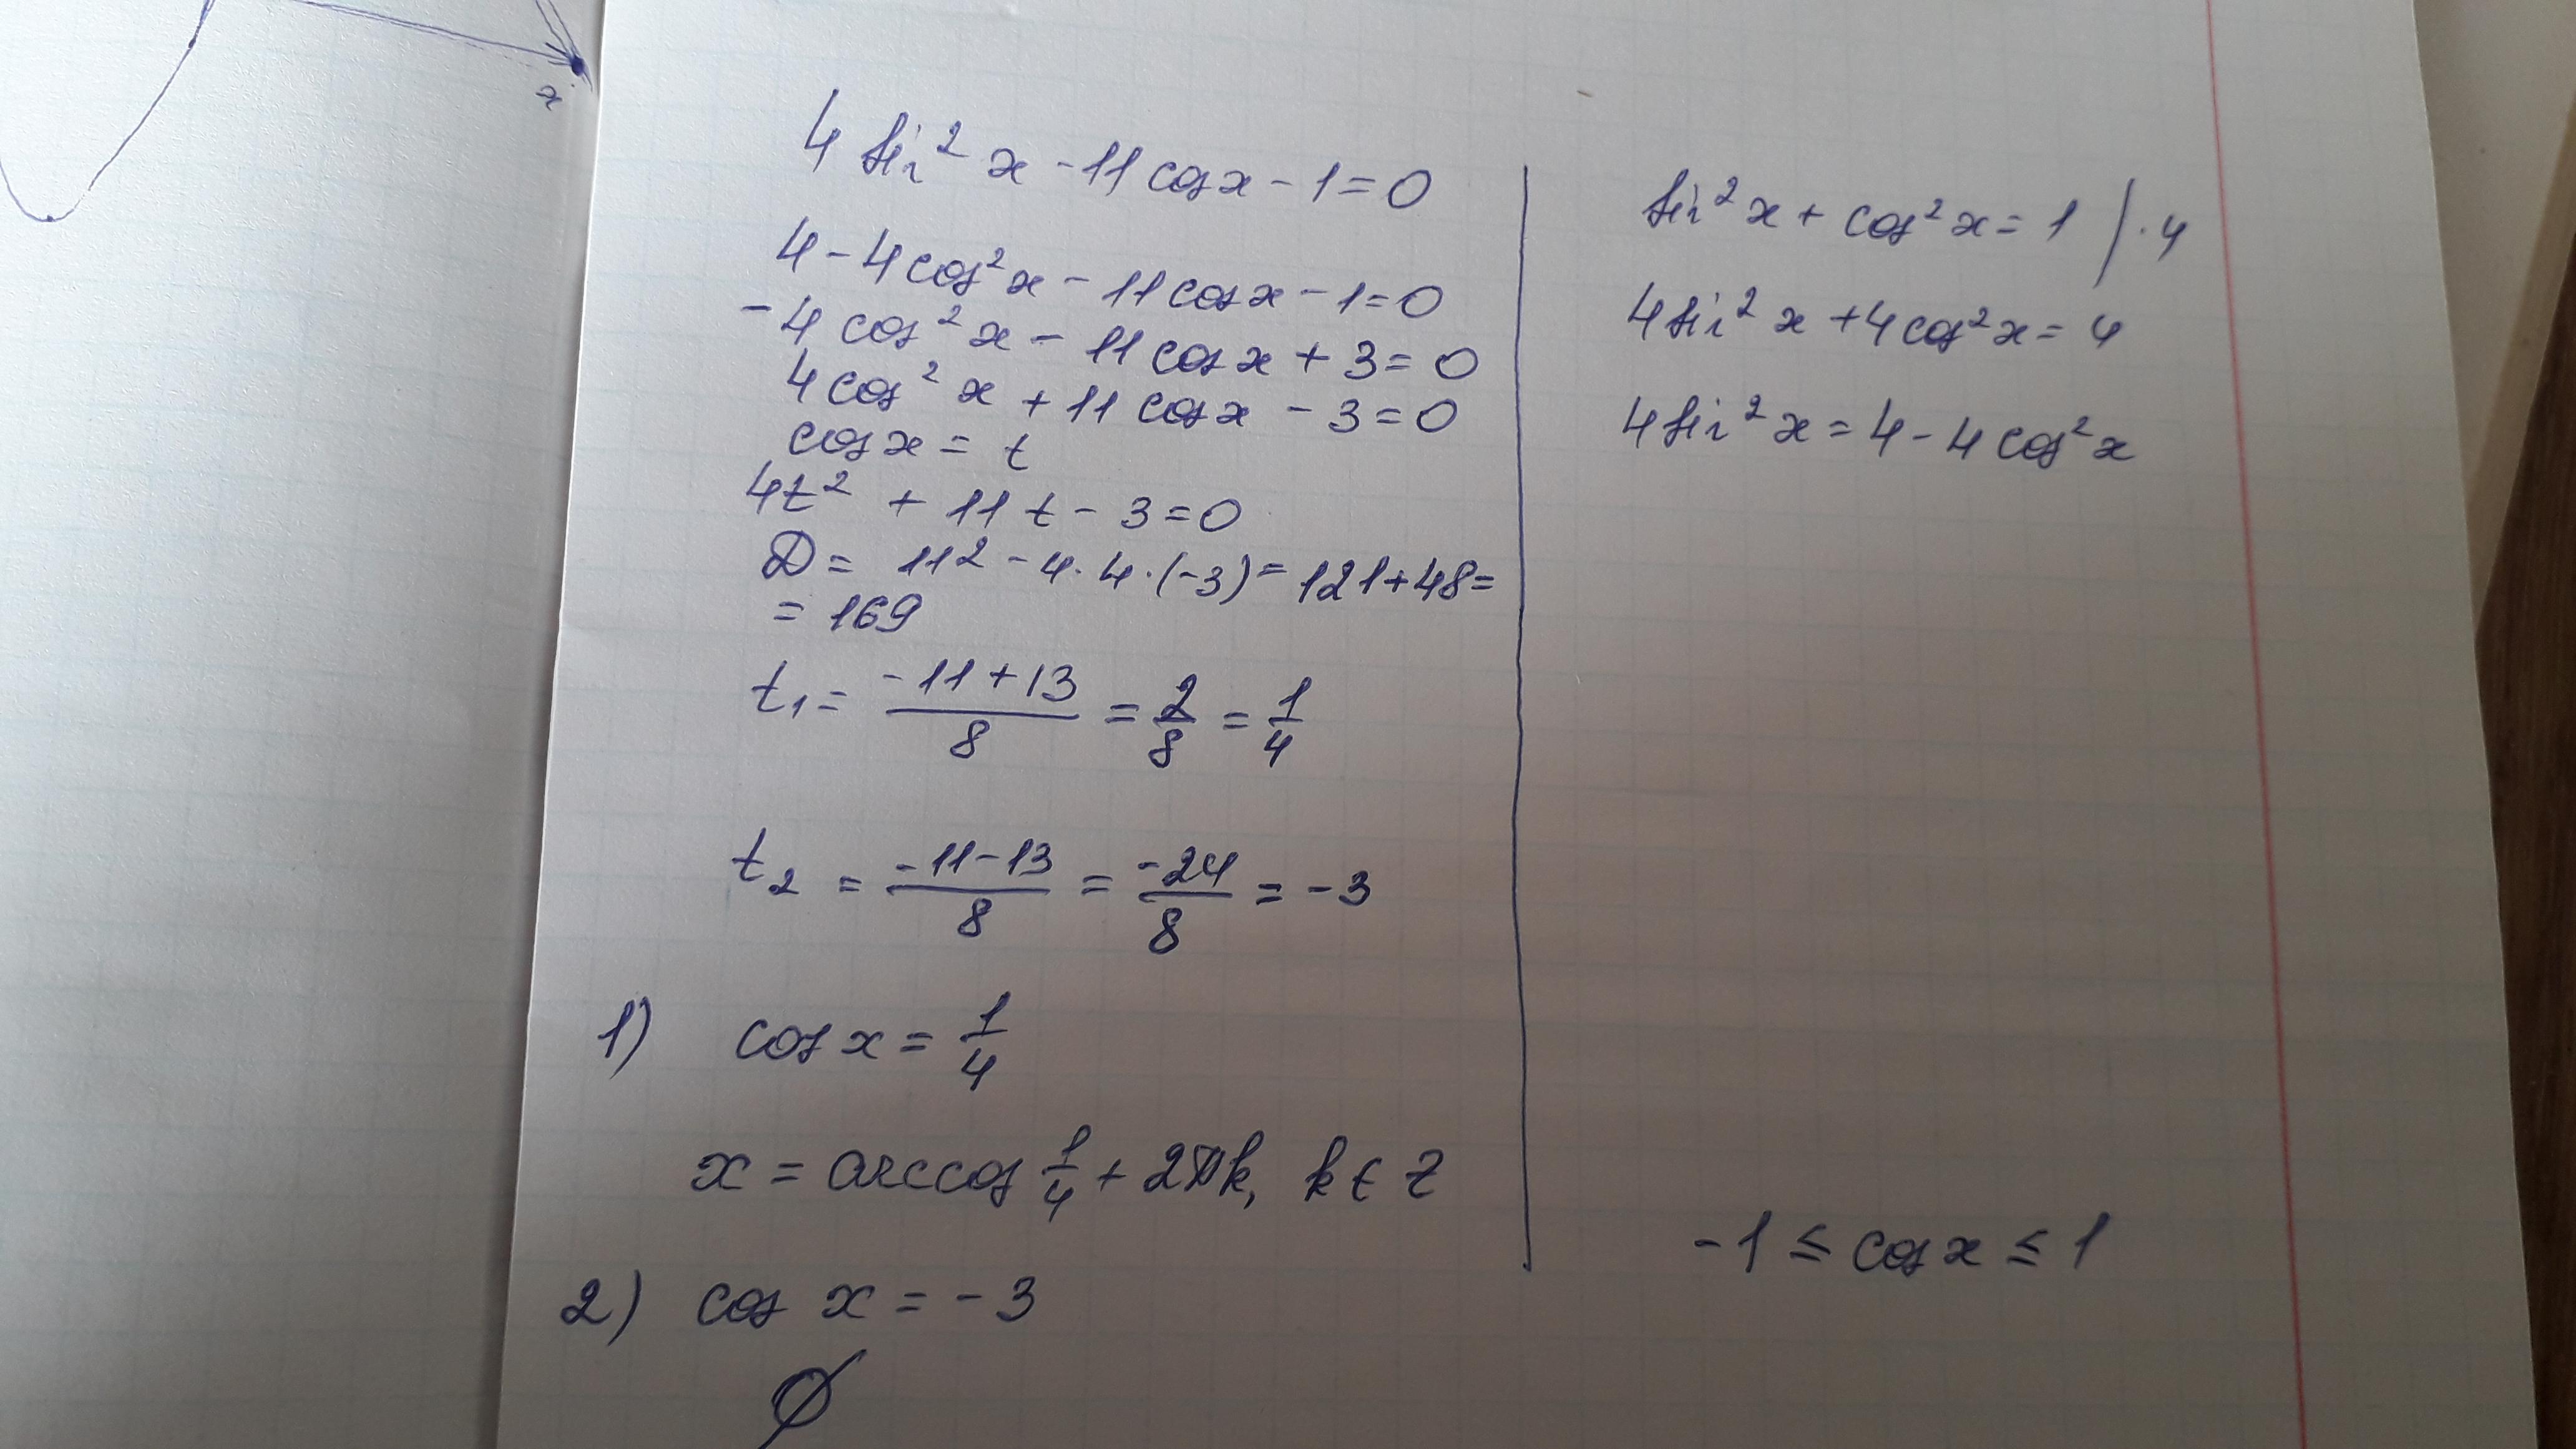 x
4 sin² x - 11 cos x - 1 = 0
4 - 4 cos² x - 11 cos x - 1 = 0
- 4 cos² x - 11 cos x + 3 = 0
4 cos² x + 11 cos x - 3 = 0
cos x = t
4t² + 11 t - 3 = 0
D = 11² - 4 · 4 · (-3) = 121 + 48 =
= 169
t₁ = (-11 + 13)/8 = 2/8 = 1/4
t₂ = (-11 - 13)/8 = -24/8 = -3
1) cos x = 1/4
x = arccos 1/4 + 2πk, k ∈ Z
2) cos x = -3
∅
sin² x + cos² x = 1 / · 4
4 sin² x + 4 cos² x = 4
4 sin² x = 4 - 4 cos² x
-1 ≤ cos x ≤ 1